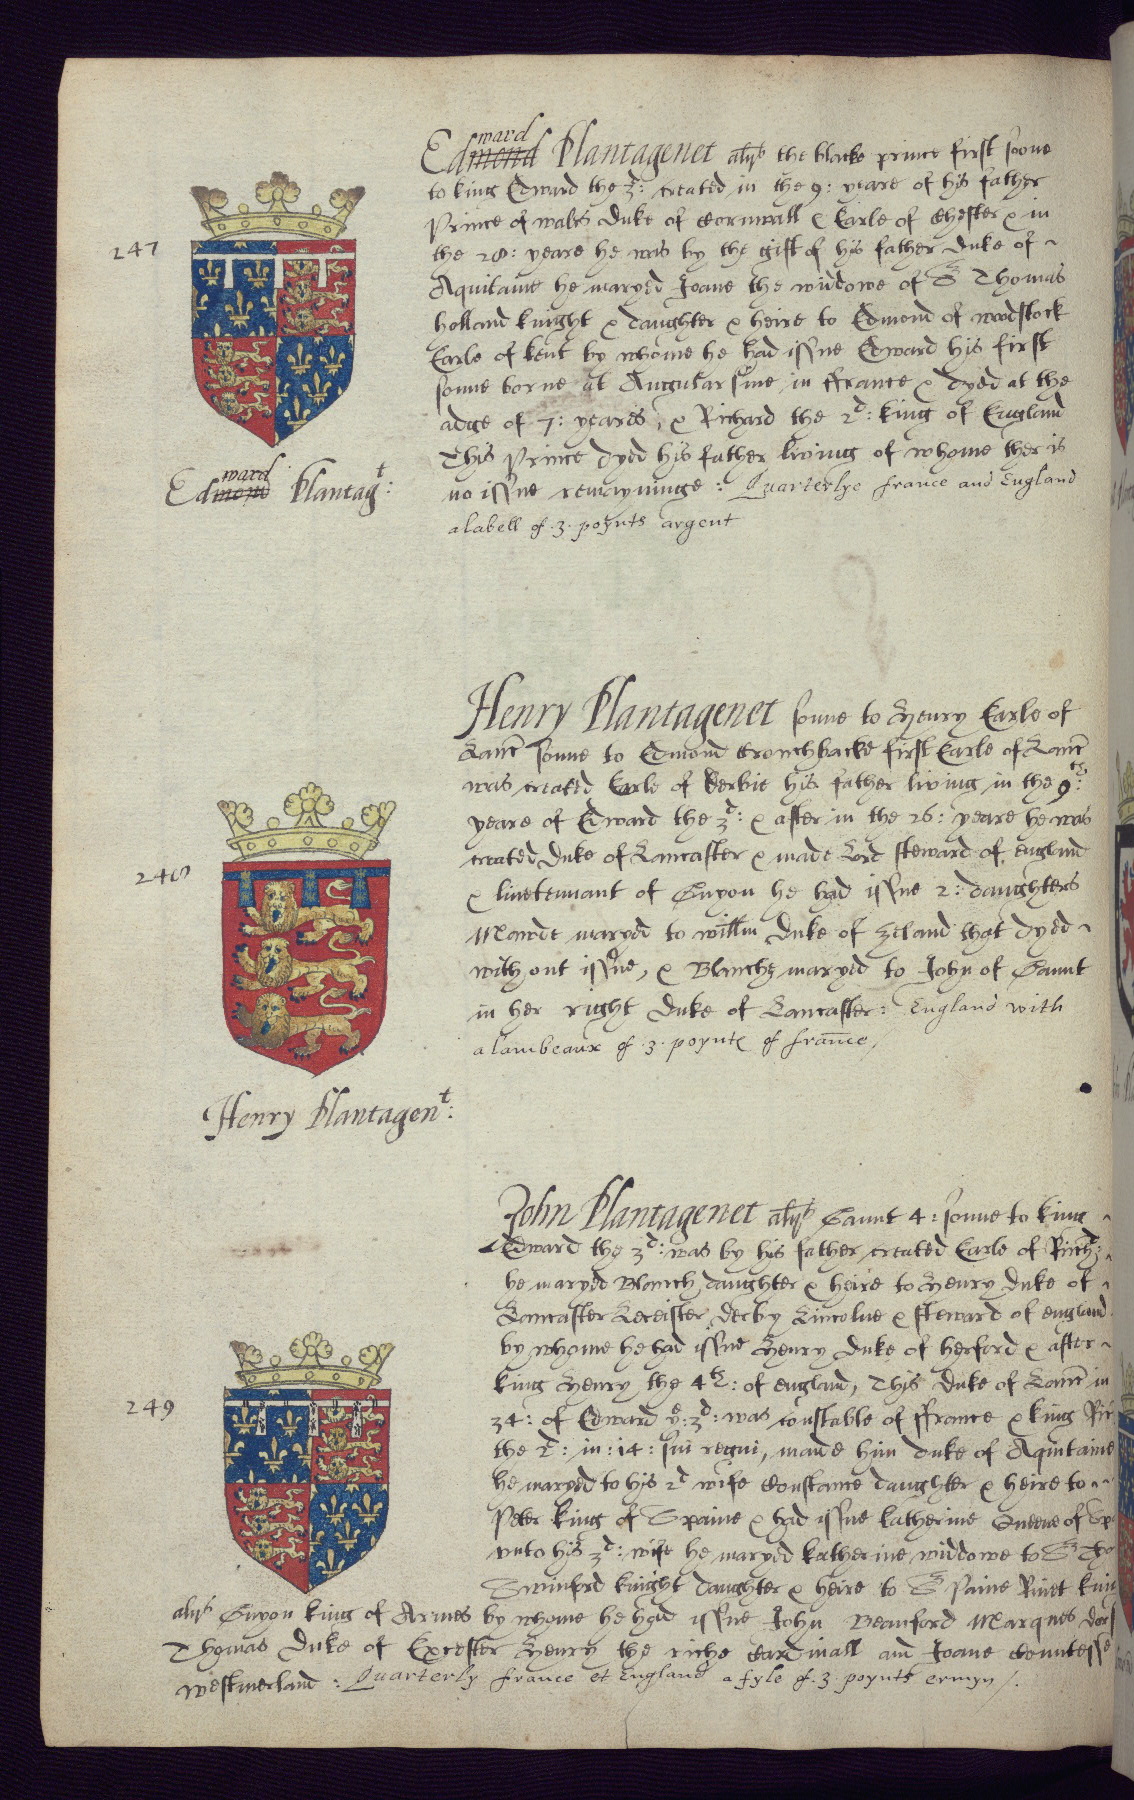 247
Edmond ward Plantagenet als the blacke prince first sonne
to king Edward the 3d: created in the 9: yeare of his father
Prince of wales Duke of Cornwall & Earle of Chester & in
the 28: yeare he was by the gift of his father Duke of
Aquitaine he maryed Joane the widowe of Sr Thomas
holland knight & daughter & heire to Edmond of woodstock
Earle of kent by whome he had issue Edward his first
sonne borne at in ffrance & dyed at the
adge of 7: yeares, & Richard the 2d: king of England
This Prince dyed his father living of whome ther is
no issue remayninge: Quarterlye france and England
a labell of .3. poynts argent
Edmond ward Plantagt:
248
Henry Plantagenet sonne to Henry Earle of
Lanc sonne to Edmond Crouchbacke first Earle of Lanc
was created Earle of Derbie his father living in the 9th:
yeare of Edward the 3d: & after in the 26: yeare he was
created Duke of Lancaster & made Lord steward of England
& livetennant of Guyon he had issue 2: daughters
Mawde maryed to willm Duke of Zeland that dyed
without issue, & Blanche maryed to John of Gaunt
in her right Duke of Lancaster: England with
a lambeaux of .3. poynts of france,
Henry Plantagent:
249
John Plantagenet als Gaunt 4: sonne to king
Edward the 3d: was by his father created Earle of Richd:
he maryed Blanch daughter & heire to Henry Duke of
Lancaster Leceister, derby Lincolne & steward of england
by whome he had issue Henry Duke of herford & after
king Henry the 4th: of england, This Duke of Lanc in
34: of Edward ye: 3d: was constable of ffrance & king Ric
the 2d: in: 14: sui regni, made him Duke of Aquitaine
he maryed to his 2d wife Constance daughter & heire to
Peter king of Spaine & had issue katherine Queene of Spa
unto his 3d: wife he maryed katherine widdowe to Sr Tho
Swinford knight daughter & heire to Sr Paine Ruet kni
als Guyon king of Armes by whome he had issue John Beauford Marques dors
Thomas Duke of Excester Henry the riche Cardinall and Joane Countesse
westmerland: Quarterly france et England a fyle of .3. poynts ermyn /.